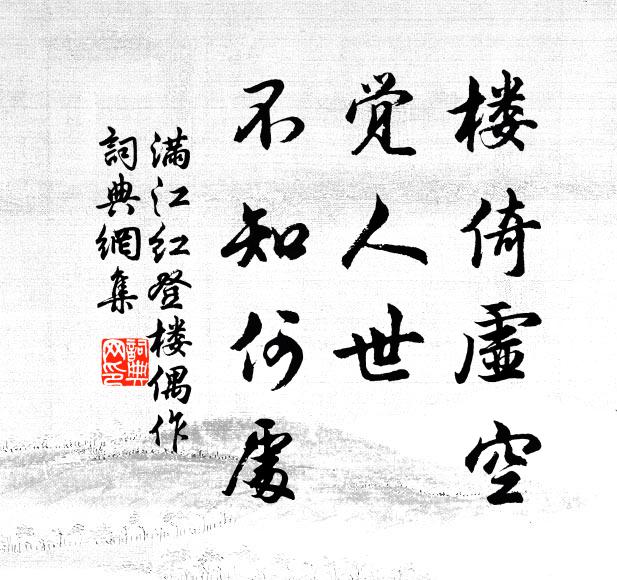 楼倚虚空
觉人世
不知何處
满江红登楼偶作
詞典網集
詞典
网印